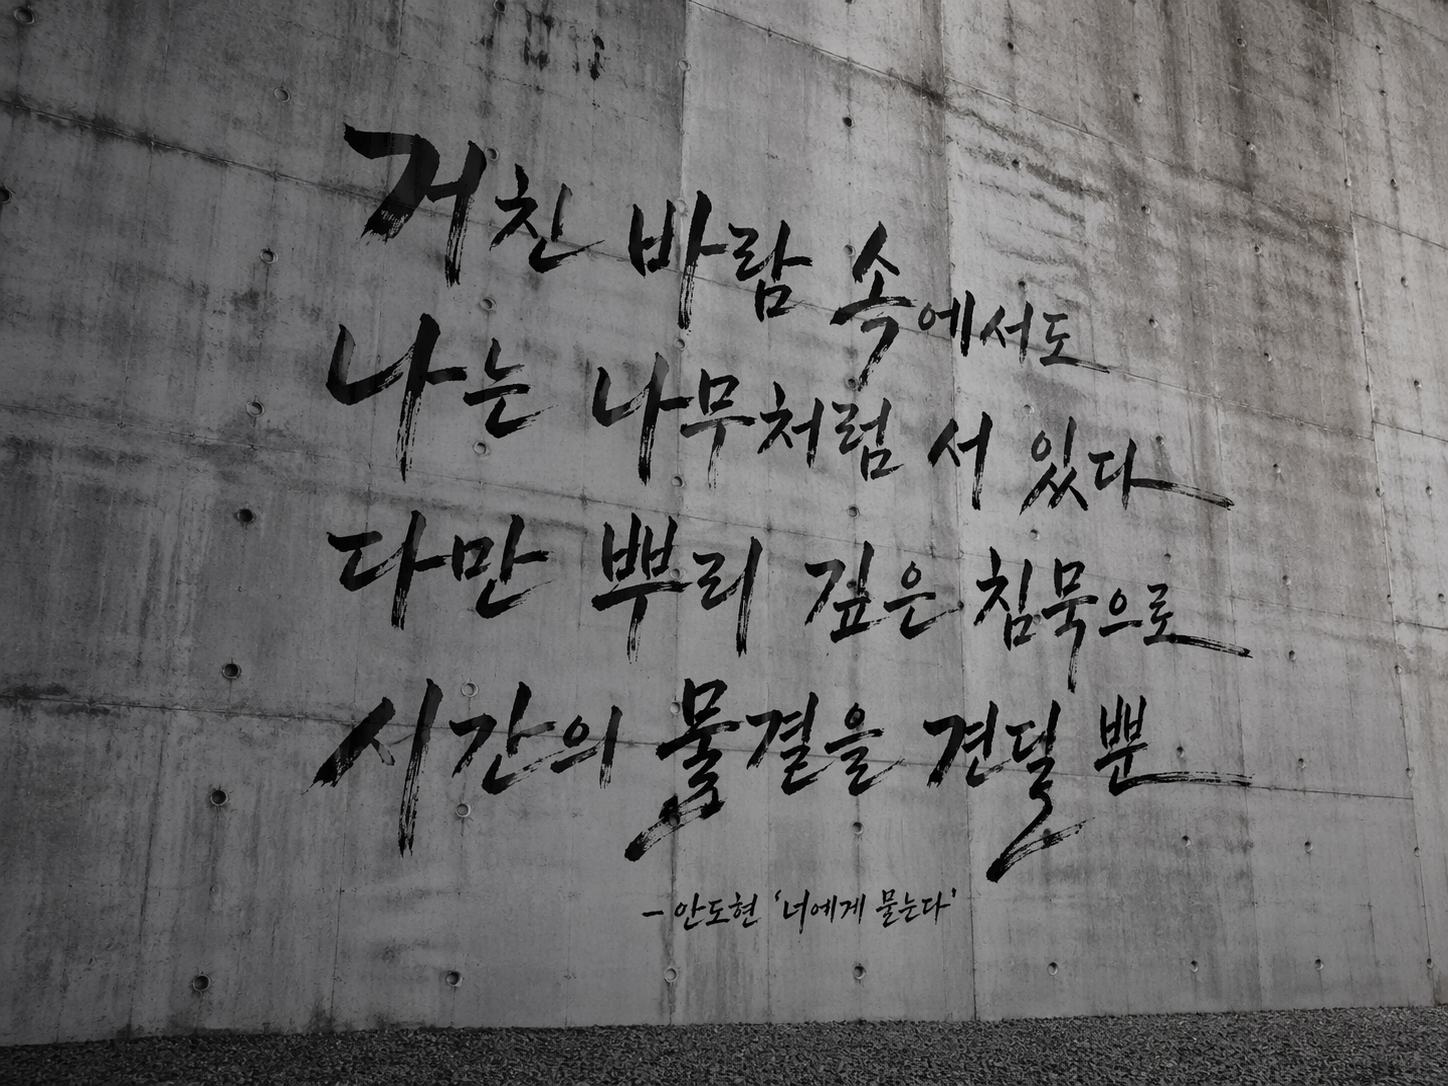 거친 바람 속에서도
나는 나무처럼 서 있다
다만 뿌리 깊은 침묵으로
시간의 물결을 견딜 뿐
- 안도현 '너에게 묻는다'